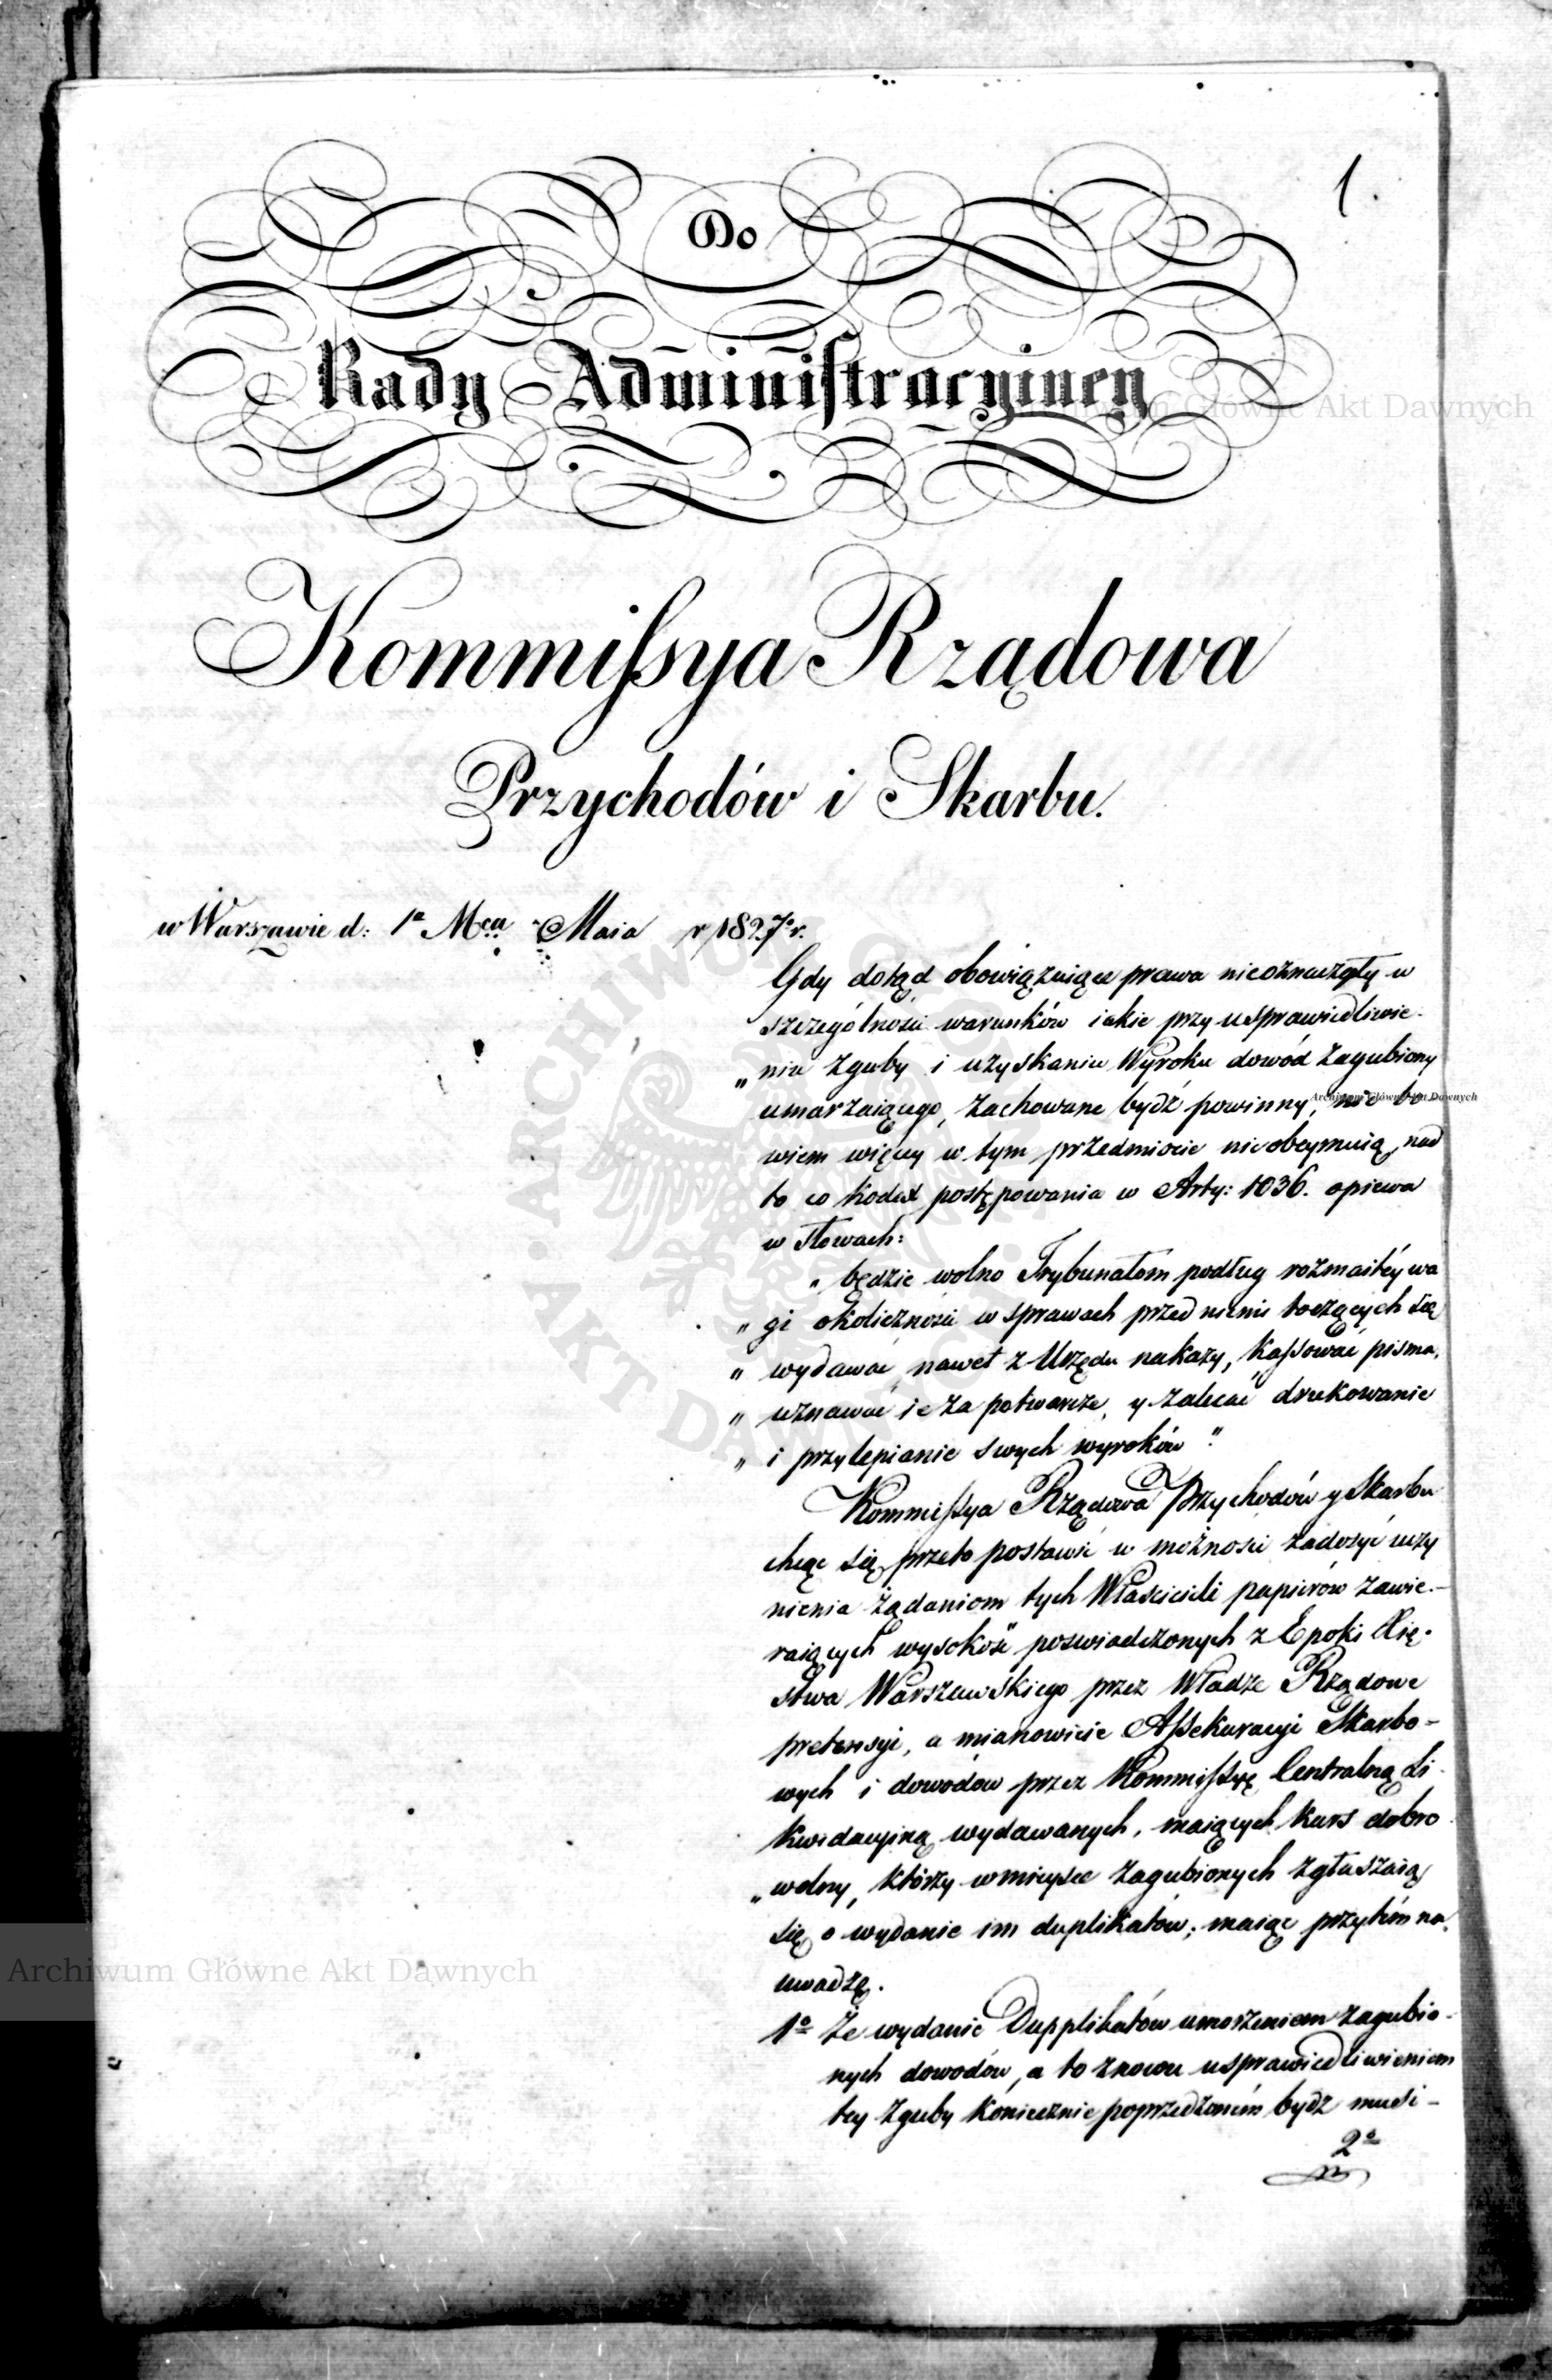 1.
Do
Rady Administracyiney
Kommissya Rządowa
Przychodów i Skarbu.
w Warszawie d: 1ª Mca Maia r 1827º r.
Gdy dotąd obowiązuiące prawa nieoznaczyły w
szczególności warunków iakie przy usprawiedliwie-
„ niu zguby i uzyskaniu Wyroku dowód zagubiony
umarzaiącego, zachowane bydź powinny, nic bo
wiem więcey w tym przedmiocie nieobeymuią, nad
to co Kodex postępowania w Arty: 1036. opiewa
w słowach:
„ będzie wolno Trybunałom podług rozmaitéy wa
„ gi okoliczności w sprawach przed niemi toczących się
„ wydawać nawet z Urzędu nakazy, kassować pisma,
„ uznawać ie za potwarcze, y zalecać drukowanie
„ i przylepianie swych wyroków."
Kommissya Rządowa Przychodów y Skarbu
chcąc się przeto postawić w możności zadosyć uczy
nienia żądaniom tych Właścicieli papierów zawie-
raiących wysokość poswiadczonych z Epoki Xię-
stwa Warszawskiego przez Władze Rządowe
pretensyi, a mianowicie Assekuracyi Skarbo-
wych i dowodów przez Kommissyę Centralną Li-
kwidacyiną wydawanych, maiących kurs dobro
„ wolny, którzy w mieysce zagubionych zgłaszaią
się o wydanie im duplikatów; maiąc przytém na
uwadze.
1º Że wydanie Dupplikatów umorzeniem zagubio-
nych dowodów, a to znowu usprawiedliwieniem
tey zguby koniecznie poprzedzoném bydź musi-
2º
Archiwum Główne Akt Dawnych
Archiwum Główne Akt Dawnych
Archiwum Główne Akt Dawnych
ARCHIWUM GŁÓWNE AKT DAWNYCH